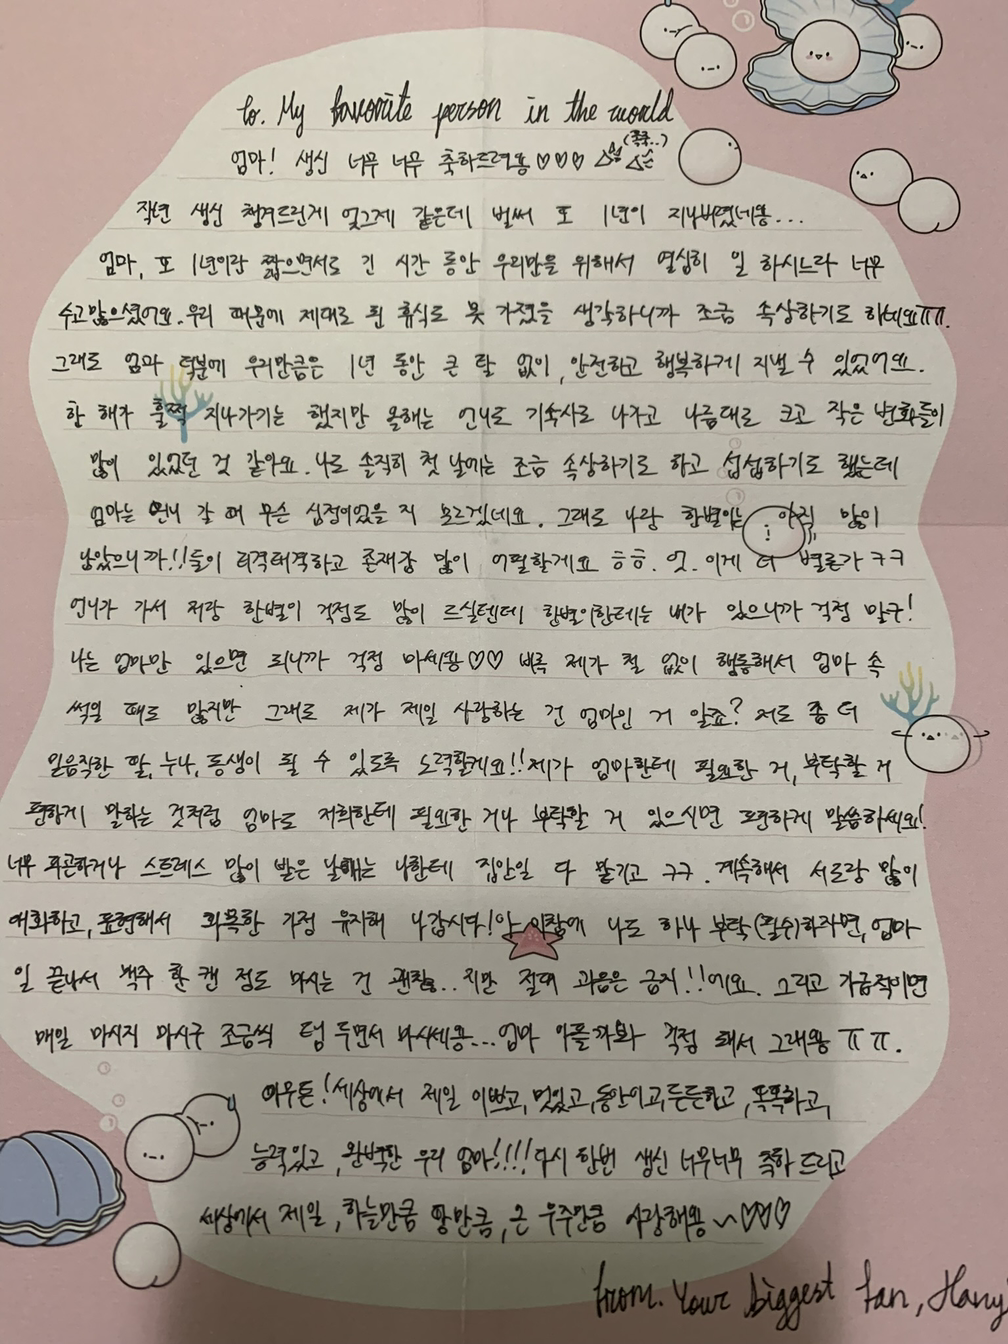 to. My favorite person in the world
엄마! 생신 너무 너무 축하드려용♡♡♡ (쪽쪽..)
작년 생신 챙겨드린게 엊그제 같은데 벌써 또 1년이 지나버렸네용...
엄마, 또 1년이란 짧으면서도 긴 시간 동안 우리만을 위해서 열심히 일 하시느라 너무
수고많으셨어요. 우리 때문에 제대로 된 휴식도 못 가졌을 생각하니까 조금 속상하기도 하네요ㅠㅠ.
그래도 엄마 덕분에 우리만큼은 1년 동안 큰 탈 없이, 안전하고 행복하게 지낼 수 있었어요.
한 해가 훌쩍 지나가기는 했지만 올해는 언니도 기숙사로 나가고 나름대로 크고 작은 변화들이
많이 있었던 것 같아요. 나도 솔직히 첫 날에는 조금 속상하기도 하고 섭섭하기도 했는데
엄마는 언니 갈 때 무슨 심정이었을 지 모르겠네요. 그래도 나랑 한별이는 아직 많이
남았으니까!! 둘이 티격태격하고 존재감 많이 어필할게요 ㅎㅎ. 엇. 이게 더 별론가 ㅋㅋ
언니가 가서 저랑 한별이 걱정도 많이 드실텐데 한별이한테는 내가 있으니까 걱정 말구!
나는 엄마만 있으면 되니까 걱정 마세용♡♡ 비록 제가 철 없이 행동해서 엄마 속
썩일 때도 많지만 그래도 제가 제일 사랑하는 건 엄마인 거 알죠? 저도 좀 더
믿음직한 딸, 누나, 동생이 될 수 있도록 노력할게요!! 제가 엄마한테 필요한 거, 부탁할 거
편하게 말하는 것처럼 엄마도 저희한테 필요한 거나 부탁할 거 있으시면 편하게 말씀하세요!
너무 피곤하거나 스트레스 많이 받은 날에는 나한테 집안일 다 맡기고 ㅋㅋ. 계속해서 서로랑 많이
대화하고, 표현해서 화목한 가정 유지해 나갑시다! 아 이참에 나도 하나 부탁(필수)하자면, 엄마
일 끝나서 맥주 한 캔 정도 마시는 건 괜찮..지만 절대 과음은 금지!!에요. 그리고 가급적이면
매일 마시지 마시구 조금씩 텀 두면서 마시세용... 엄마 아플까봐 걱정 돼서 그래용 ㅠㅠ.
아무튼! 세상에서 제일 이쁘고, 멋있고, 동안이고, 든든하고, 똑똑하고,
능력있고, 완벽한 우리 엄마!!!! 다시 한번 생신 너무너무 축하 드리고
세상에서 제일, 하늘만큼 땅만큼, 온 우주만큼 사랑해용~♡♡♡
from. Your biggest fan, Hany